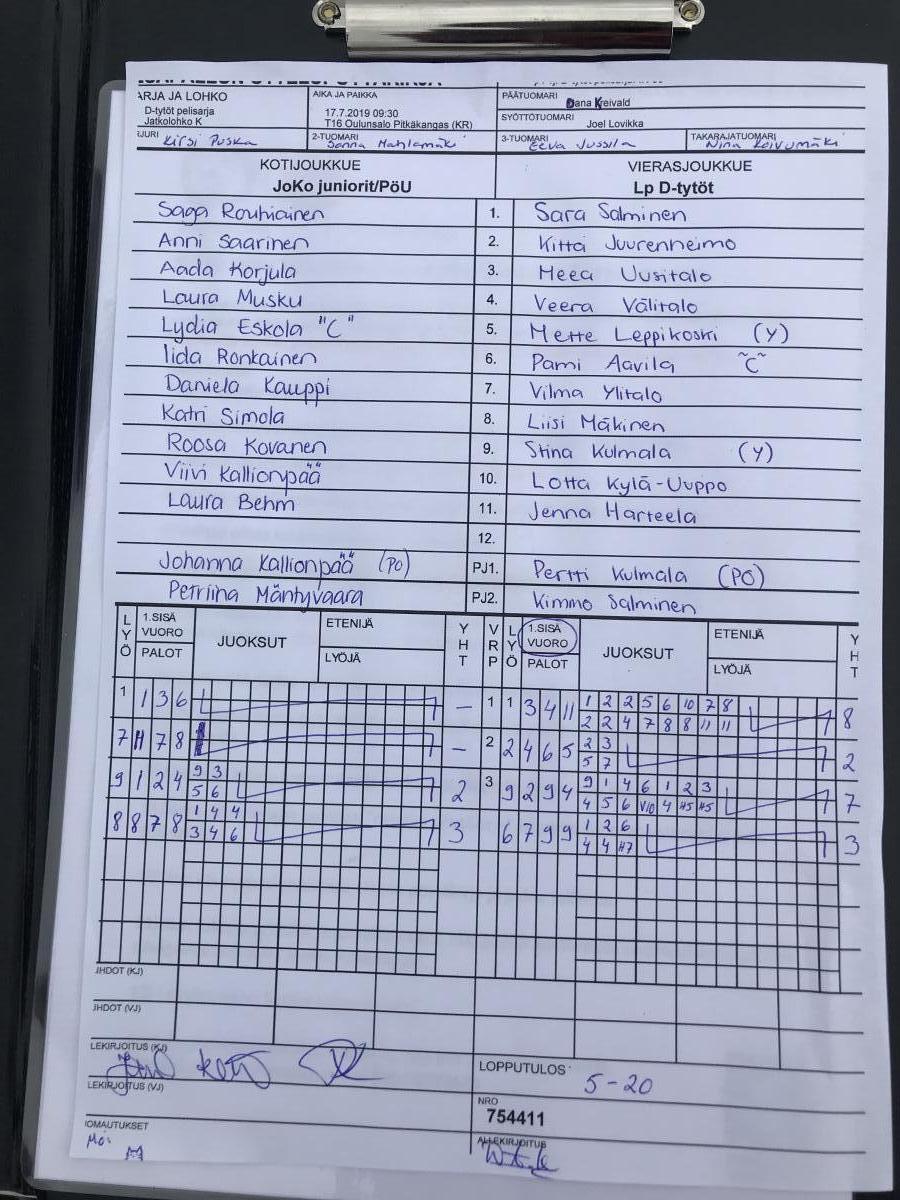 ARJA JA LOHKO
D-tytöt pelisarja
Jatkolohko K
AIKA JA PAIKKA
17.7.2019 09:30
T16 Oulunsalo Pitkäkangas (KR)
PÄÄTUOMARI Dana Kreivald
SYÖTTÖTUOMARI Joel Lovikka
Kirsi Puska
2-TUOMARI Sanna Mahlamäki
3-TUOMARI Eeva Jussila
TAKARAJATUOMARI Nina Koivumäki
KOTIJOUKKUE
JoKo juniorit/PöU
VIERASJOUKKUE
Lp D-tytöt
Saga Rouhiainen 1. Sara Salminen
Anni Saarinen 2. Kitta Juurenheimo
Aada Korjula 3. Meea Uusitalo
Laura Musku 4. Veera Välitalo
Lydia Eskola "C" 5. Mette Leppikoski (Y)
Iida Ronkainen 6. Pami Aavila "C"
Daniela Kauppi 7. Vilma Ylitalo
Katri Simola 8. Liisi Mäkinen
Roosa Kovanen 9. Stina Kulmala (Y)
Viivi Kallionpää 10. Lotta Kylä-Uuppo
Laura Behm 11. Jenna Harteela
12.
Johanna Kallionpää (PO) PJ1. Pertti Kulmala (PO)
Petriina Mäntyvaara PJ2. Kimmo Salminen
LYÖ 1.SISÄ VUORO PALOT JUOKSUT ETENIJÄ LYÖJÄ YHT VRP LYÖ 1.SISÄ VUORO PALOT JUOKSUT ETENIJÄ LYÖJÄ YHT
1 1 3 6 – 1 1 3 4 11 1 2 2 5 6 10 7 8 8
2 2 4 7 8 8 11 11
7 H 7 8 – 2 2 4 6 5 2 3 2
5 7
9 1 2 4 9 3 2 3 9 2 9 4 9 1 4 6 1 2 3 7
5 6 4 5 6 V10 4 H5 H5
8 8 7 8 1 4 4 3 6 7 9 9 1 2 6 3
3 4 6 4 4 H7
JHDOT (KJ)
JHDOT (VJ)
LEKIRJOITUS (KJ)
LEKIRJOITUS (VJ)
LOPPUTULOS 5-20
NRO
754411
IOMAUTUKSET
ALLEKIRJOITUS